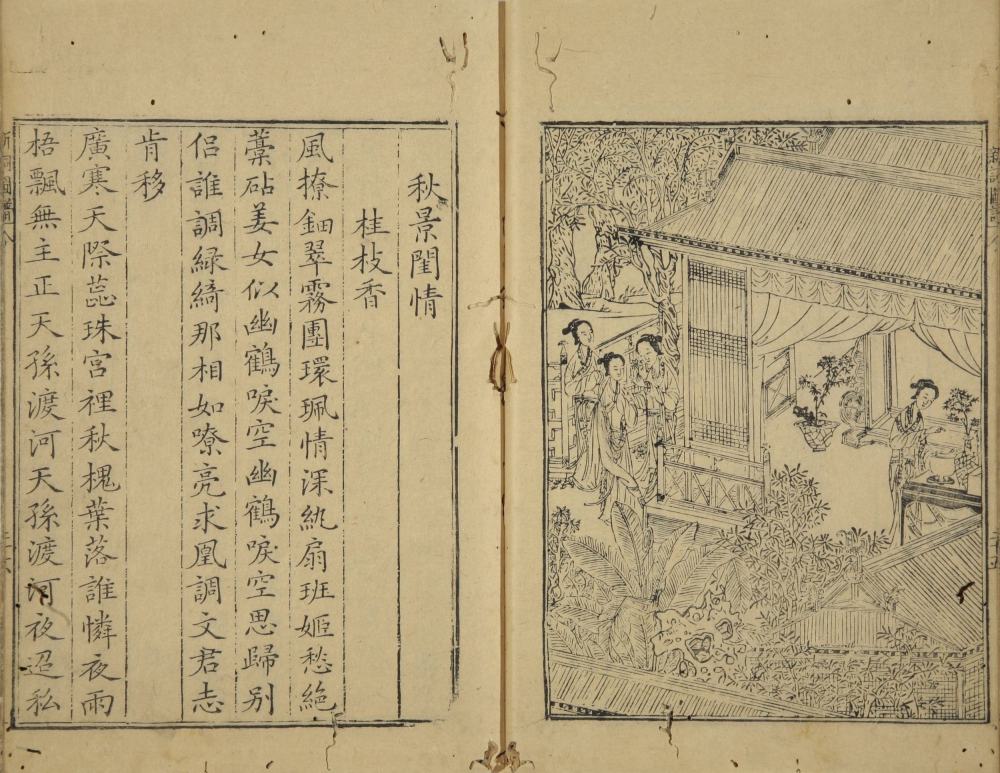 秋景閨情
桂枝香
風撩鈿翠霧團環珮情深紈扇班姬愁絶
藁砧姜女似幽鶴唳空幽鶴唳空思歸别
侣誰調緑綺那相如嘹亮求凰調文君志
肯移
廣寒天際蕊珠宫裡秋槐葉落誰憐夜雨
梧飄無主正天孫渡河天孫渡河夜迢私